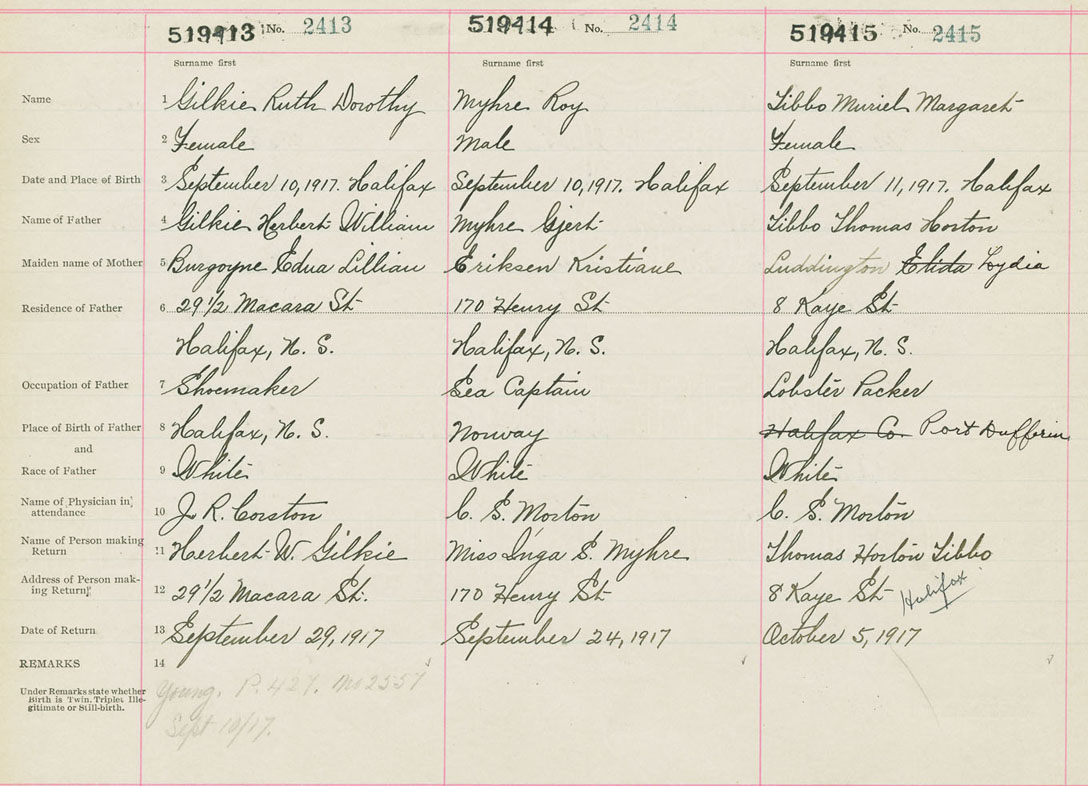 519413 No. 2413 519414 No. 2414 519415 No. 2415
Surname first Surname first Surname first
Name 1 Gilkie Ruth Dorothy Myhre Roy Tibbo Muriel Margaret
Sex 2 Female Male Female
Date and Place of Birth 3 September 10, 1917. Halifax September 10, 1917. Halifax September 11, 1917. Halifax
Name of Father 4 Gilkie Herbert William Myhre Gjert Tibbo Thomas Horton
Maiden name of Mother 5 Burgoyne Edna Lillian Eriksen Kristiane Luddington Elida Lydia
Residence of Father 6 29 1/2 Macara St 170 Henry St 8 Kaye St
Halifax, N. S. Halifax, N. S. Halifax, N. S.
Occupation of Father 7 Shoemaker Sea Captain Lobster Packer
Place of Birth of Father 8 Halifax, N. S. Norway Halifax Co Port Dufferin
and
Race of Father 9 White White White
Name of Physician in
attendance 10 J. R. Corston C. S. Morton C. S. Morton
Name of Person making
Return 11 Herbert W. Gilkie Miss Inga S. Myhre Thomas Horton Tibbo
Address of Person mak-
ing Return 12 29 1/2 Macara St. 170 Henry St 8 Kaye St Halifax
Date of Return 13 September 29, 1917 September 24, 1917 October 5, 1917
REMARKS 14
Under Remarks state whether
Birth is Twin, Triplet, Ille-
gitimate or Still-birth.
Young. P. 427. No 2557
Sept 10/17.